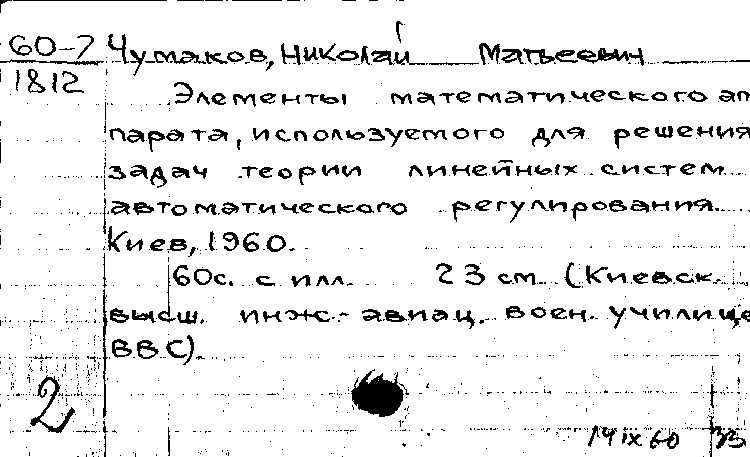 60-7 Чумаков, Николай Матвеевич
1812
Элементы математического ап
парата, используемого для решения
задач теории линейных систем
автоматического регулирования.
Киев, 1960.
60с. с илл. 23 см (Киевск.
высш. инж.-авиац. воен. училище
ВВС).
2
14 IX 60